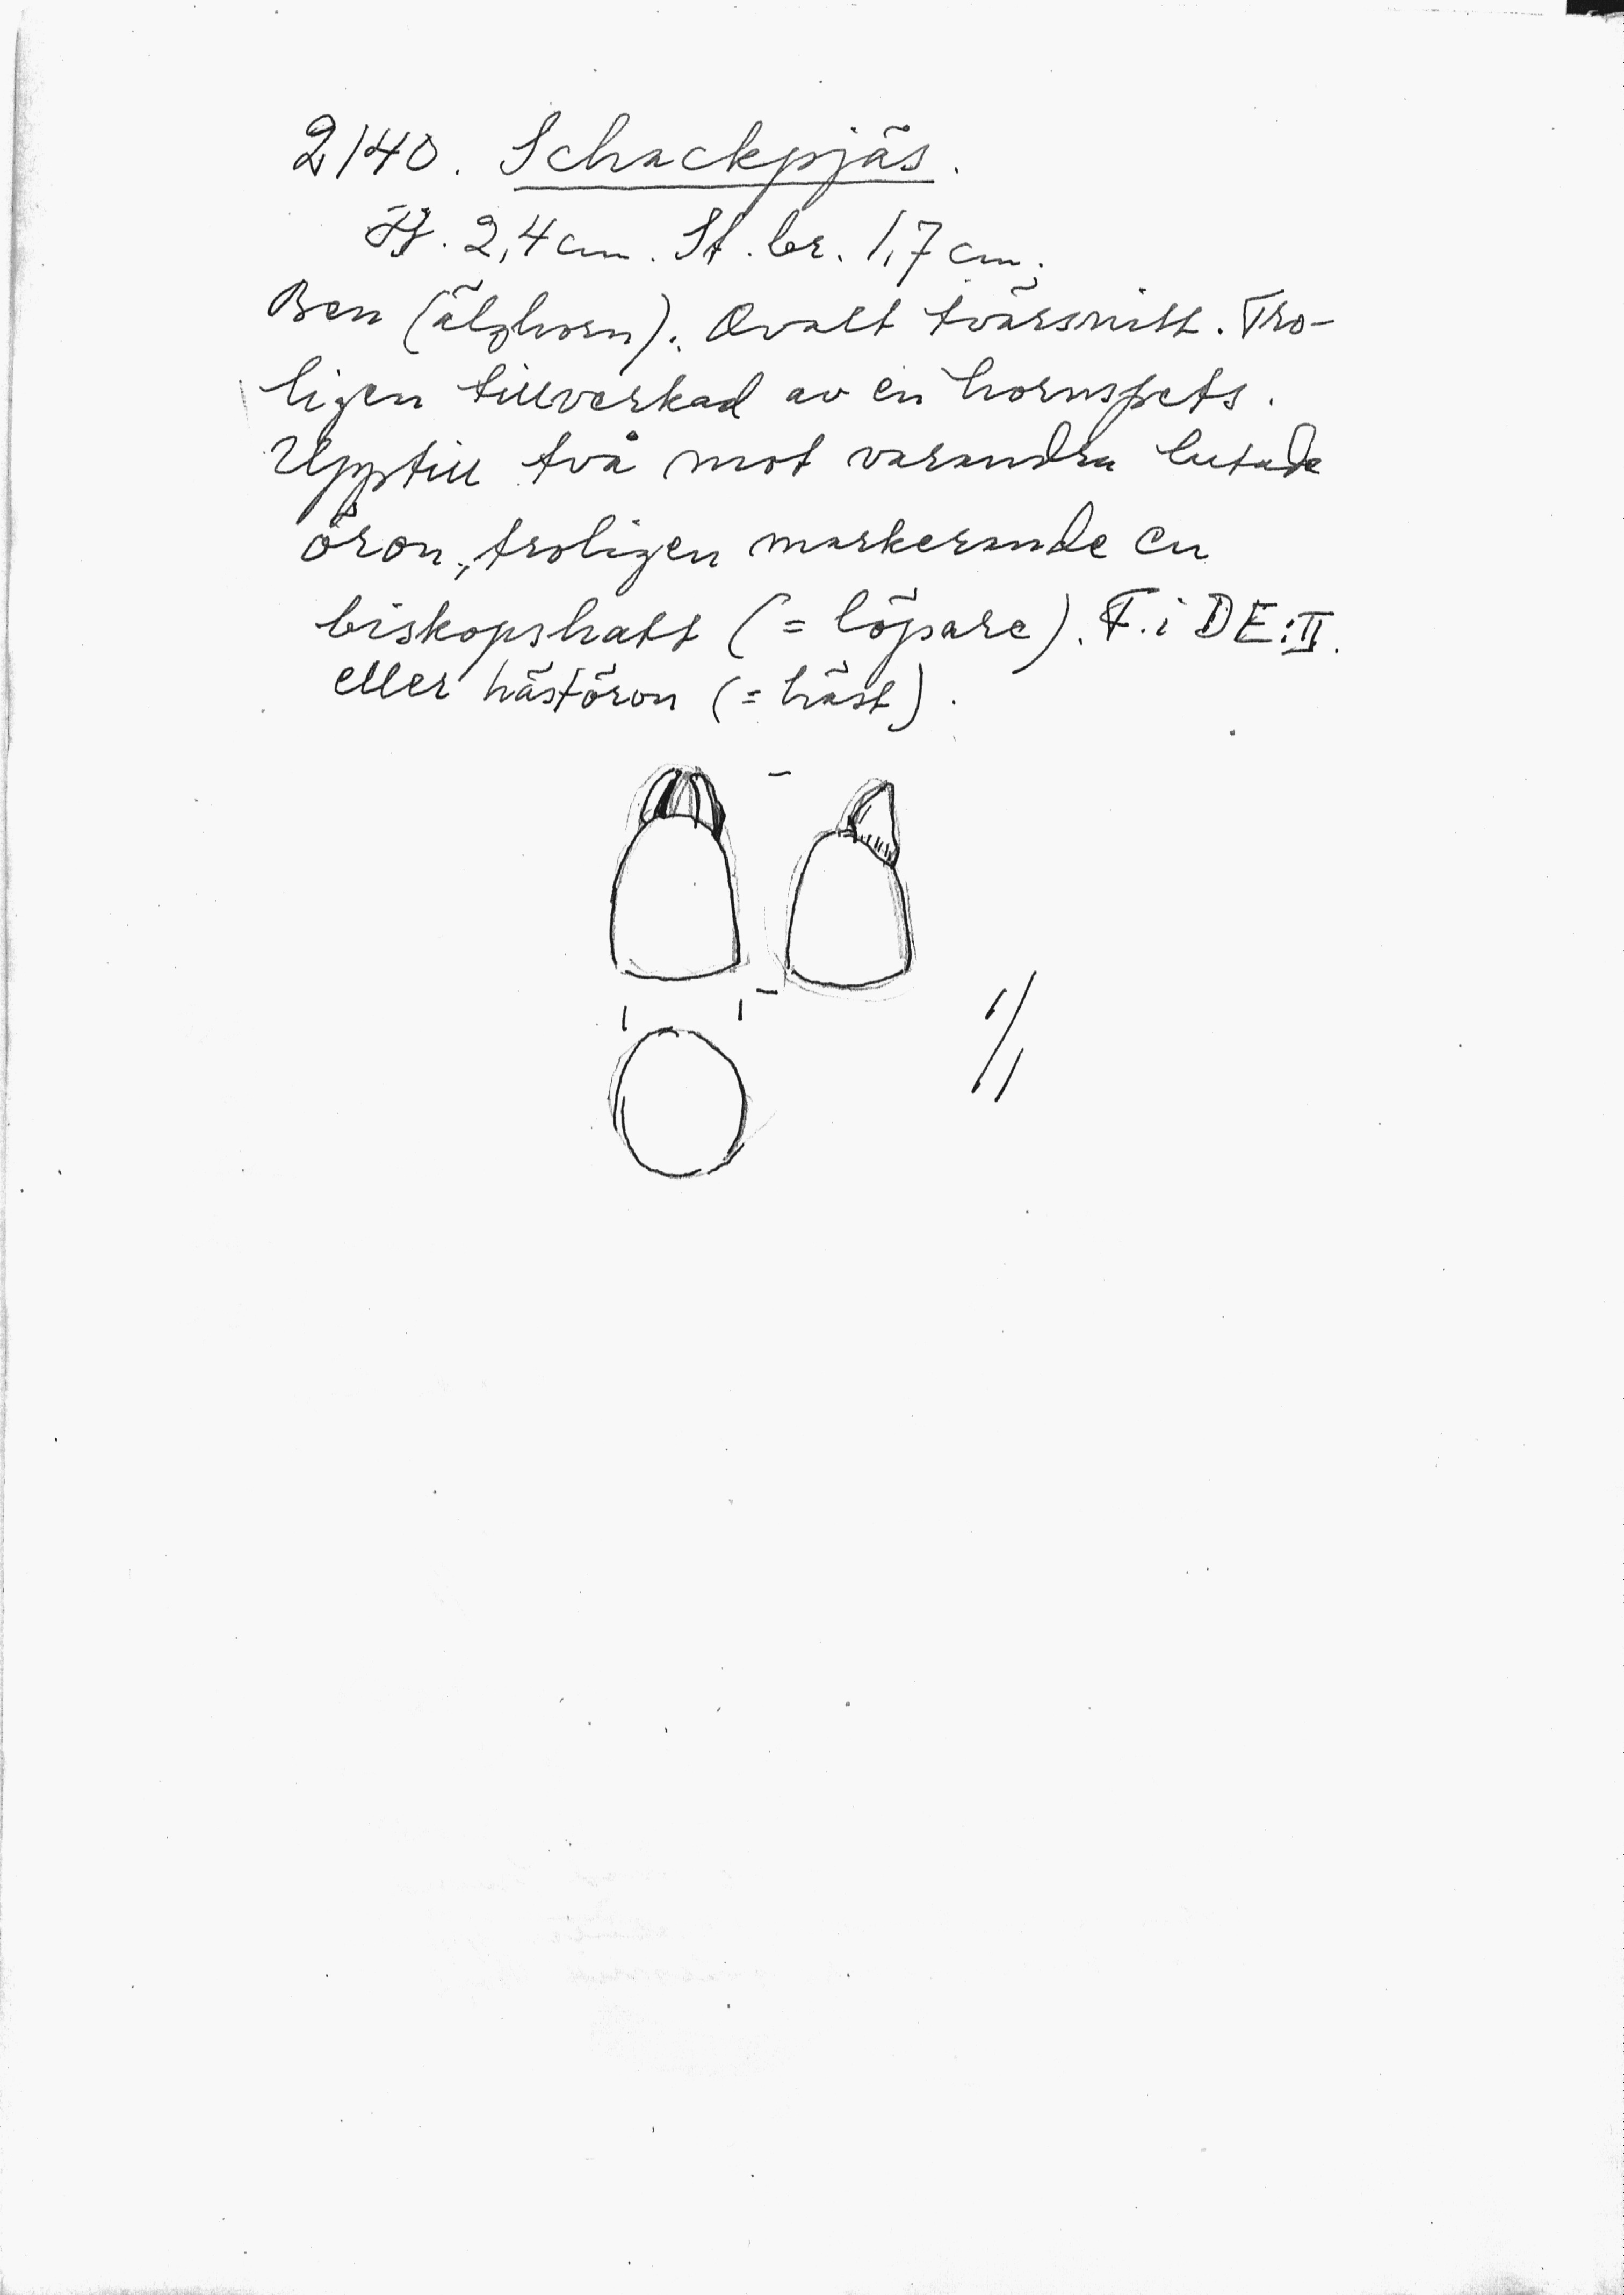 2140. Schackpjäs.
H. 2,4 cm. St. br. 1,7 cm.
Ben (älghorn). Ovalt tvärsnitt. Tro-
ligen tillverkad av en hornspets.
Upptill två mot varandra lutade
öron, troligen markerande en
biskopshatt (= löpare). F. i DE:II.
eller hästöron (= häst).
1/1